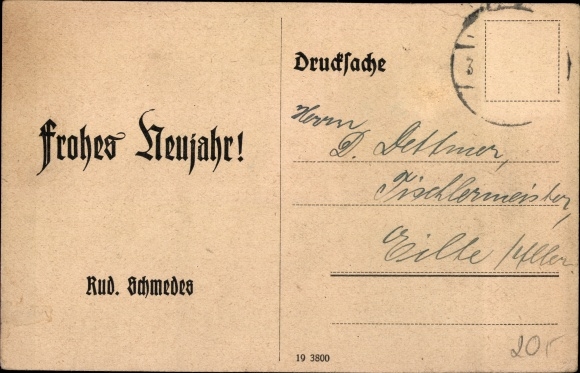 Frohes Neujahr!
Rud. Schmedes
Drucksache
Herrn
D. Dettmer,
Tischlermeister,
Eilte /Aller.
19 3800
20,-